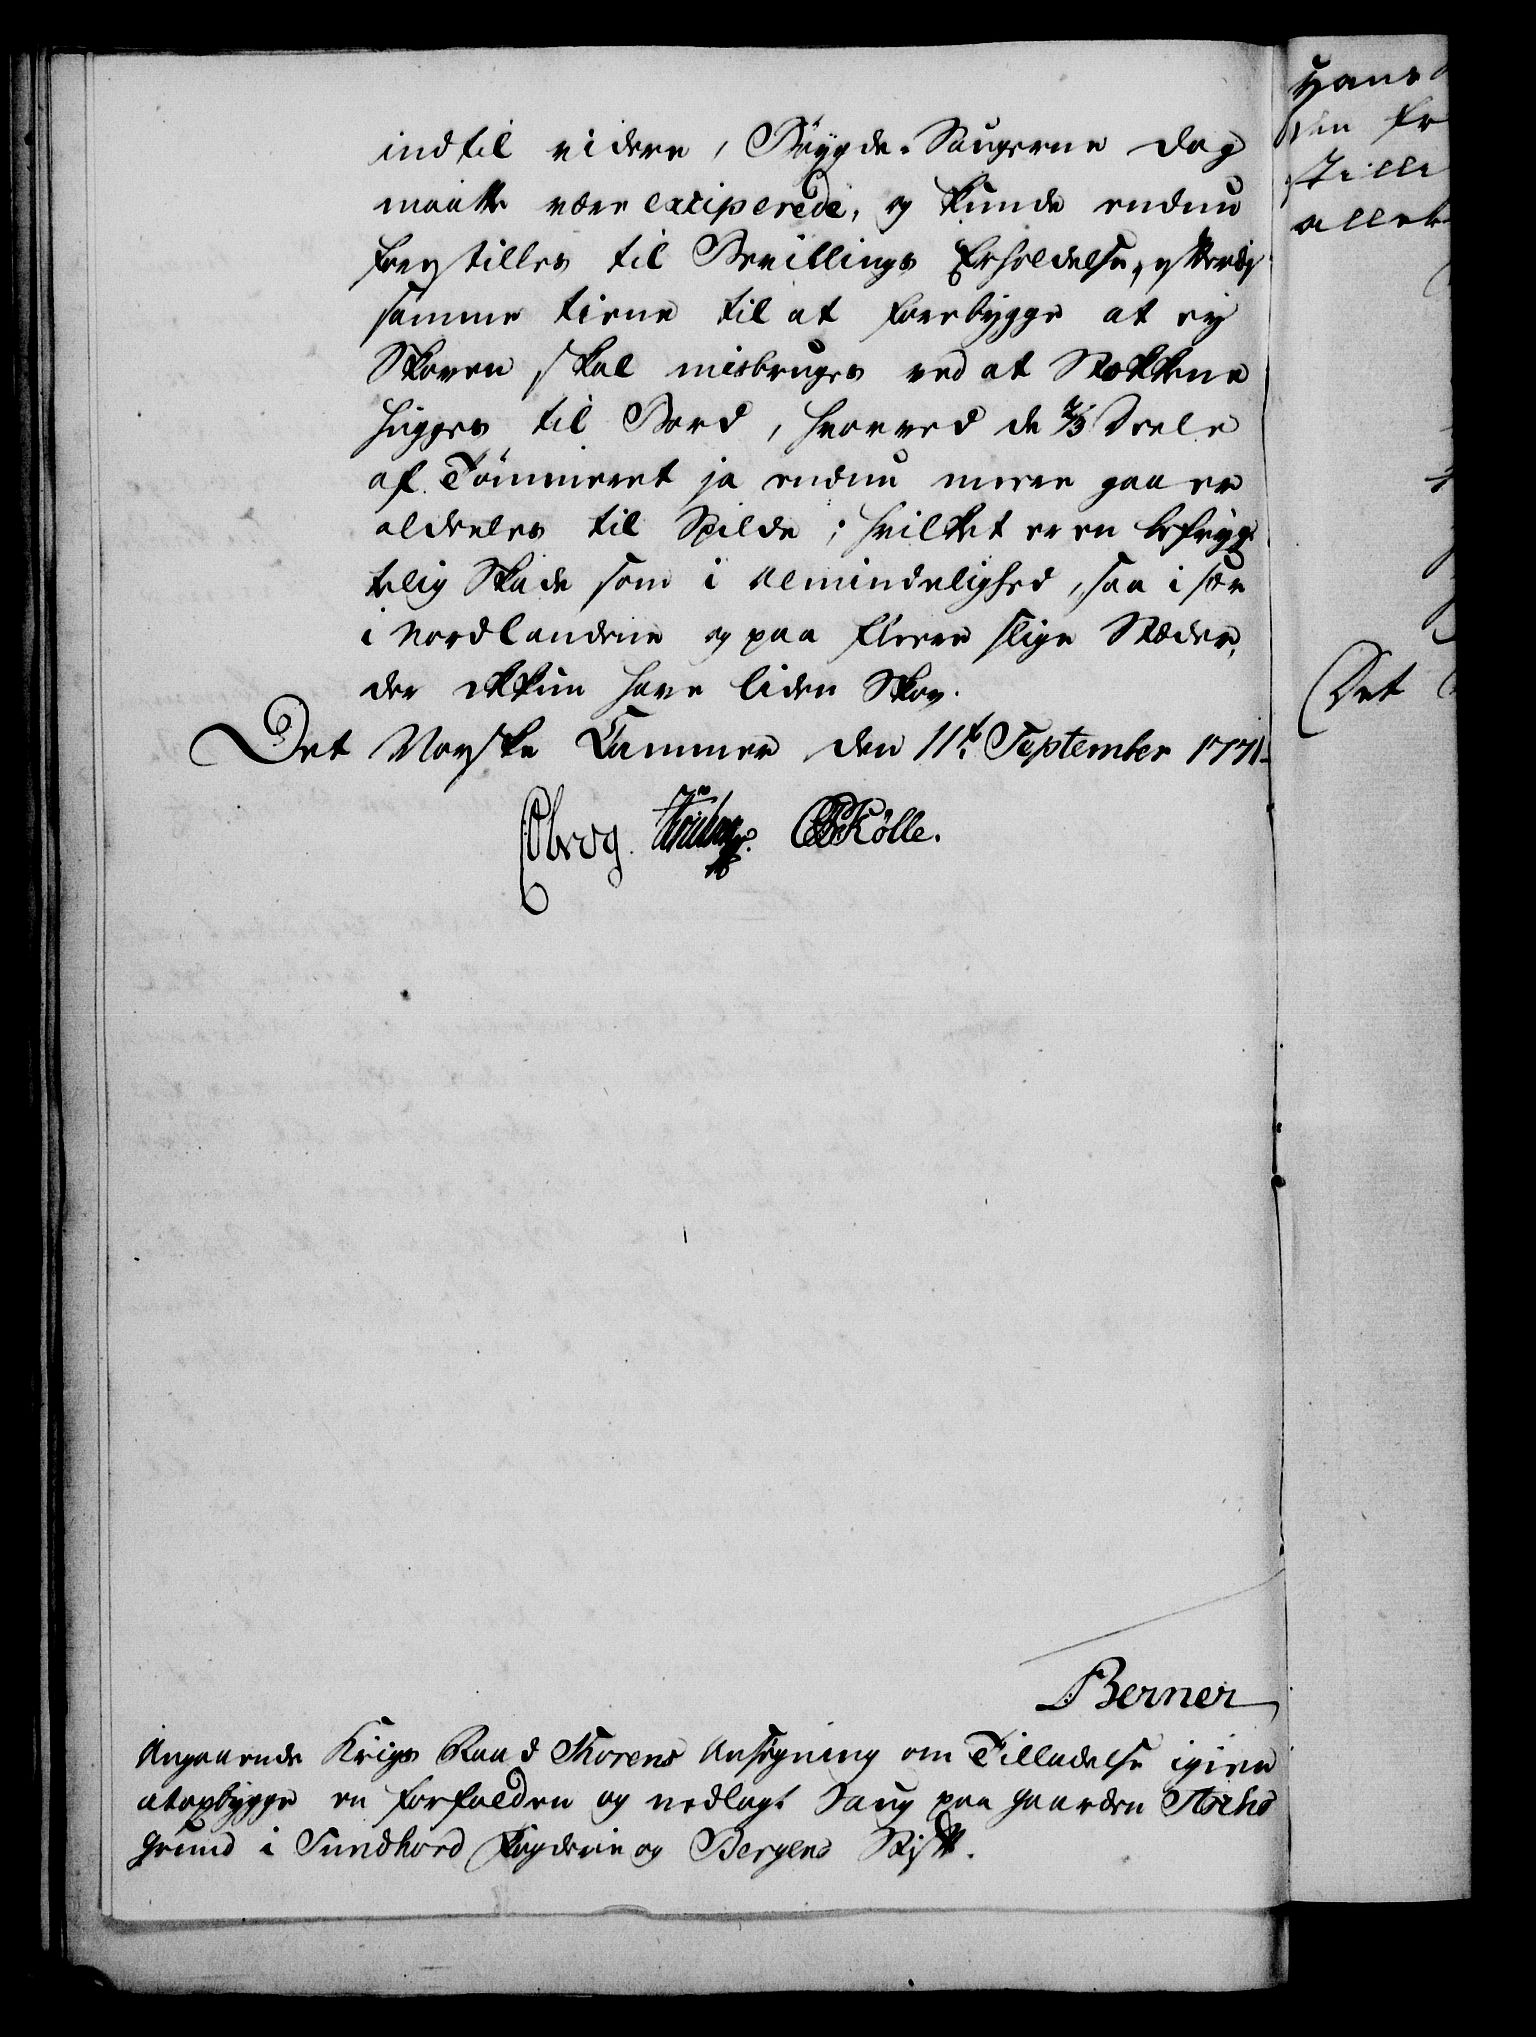 indtil videre, Bøygde-Saugerne dog
maatte være exciperede, og kunde endnu
frey stilles til Bevillings Erholdelse,
samme tiene til at forebygge at ey
Skoven skal misbruges ved at Stokkene
hugges til Bord, hvorved de 2/3 Deele
af Tømmeret ja endnu meere gaaer
aldeeles til Spilde; hvilket er en befryg-
telig Skade som i Almindelighed, saa i sær
i Nordlandene og paa fleere slige Stæder,
der ikkun have liden Skov.
Det Norske Cammer den 11te September 1771
Obeog. CBKølle.
Berner
Angaaende Krigs Raad Thorens Ansøgning om Tilladelse igien
at opbygge en forfalden og nedlagt Saug paa Gaarden
Grund i Sundhord Fogderie og Bergens Stift.
Hans
den
stille
aller
Det